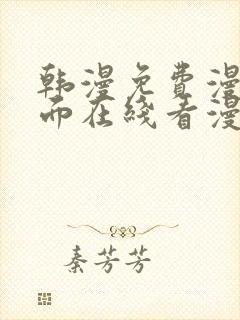 韩漫免费漫
面在线看漫
秦芳芳